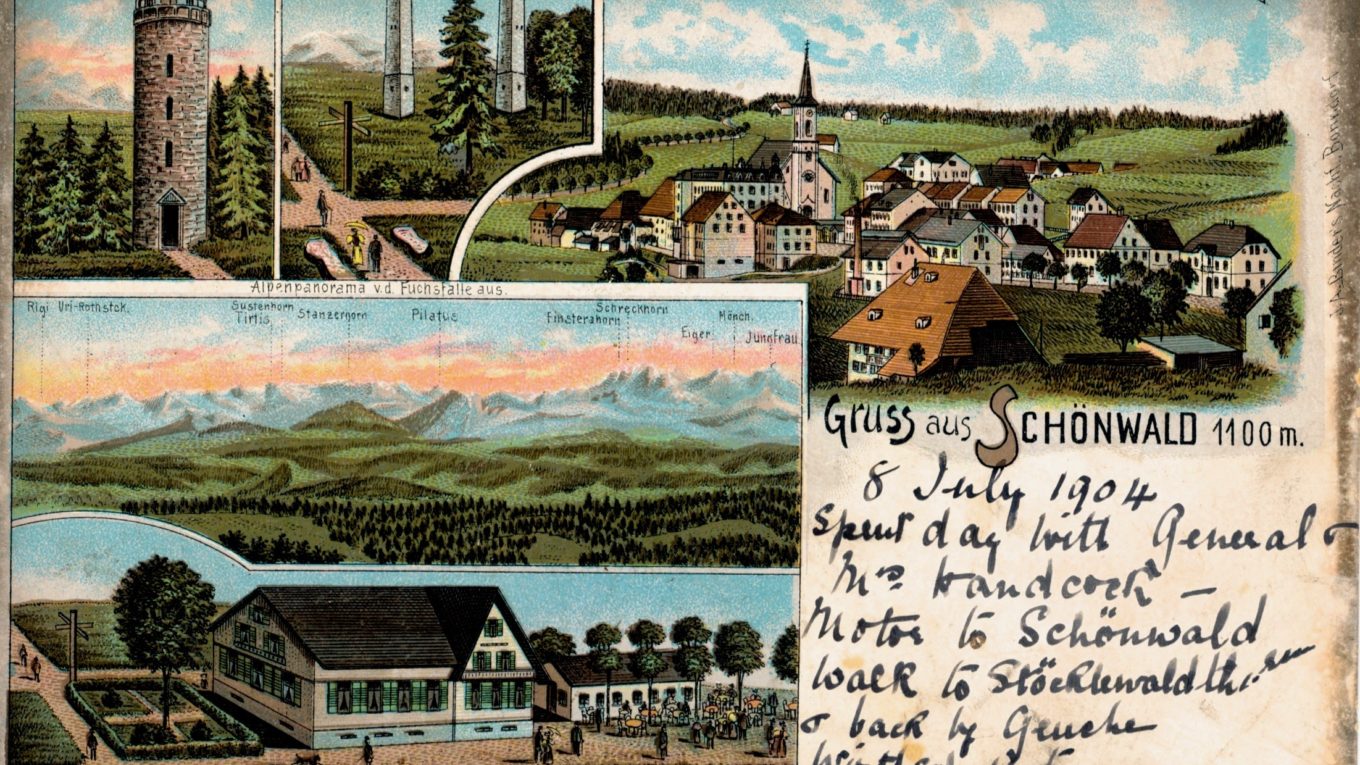 Alpenpanorama v.d. Fuchsfalle aus.
Rigi Uri-Rothstok. Sustenhorn Titlis Stanzerhorn Pilatus Finsterahorn Schreckhorn Eiger. Mönch. Jungfrau
Gruss aus SCHÖNWALD 1100 m.
8 July 1904
Spent day with General &
Mrs Handcock —
Motor to Schönwald
walk to Stöcklewaldthurm
& back by